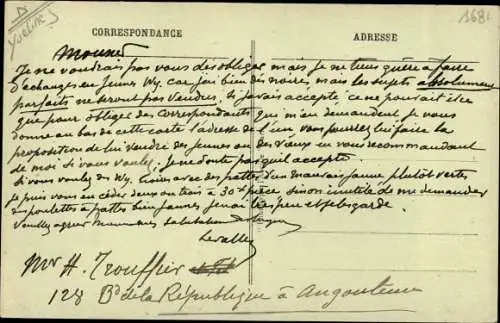 Yvelines
168
CORRESPONDANCE
ADRESSE
Monsieur
Je ne voudrais pas vous désobliger mais je ne tiens guère à faire
d'échanges en jeunes Wy. car j'ai bien des noires, mais les sujets absolument
parfaits ne seront pas vendus. si j'avais accepté ce ne pourrait être
que pour obliger des correspondants qui m'en demandent je vous
donne au bas de cette carte l'adresse de l'un, vous pourrez lui faire la
proposition de lui vendre des jeunes ou des vieux en vous recommandant
de moi si vous voulez. Je ne doute pas qu'il accepte.
Si vous voulez des Wy. avec des pattes d'un mauvais jaune plutôt vertes
je puis vous en céder deux ou trois à 30f pièce sinon inutile de me demander
des poulettes à pattes bien jaunes j'en ai très peu et je les garde.
Veuillez agréer Monsieur Salutations
Levalley
Mr H. Trouffier
128 Bd de la République à Angouleme